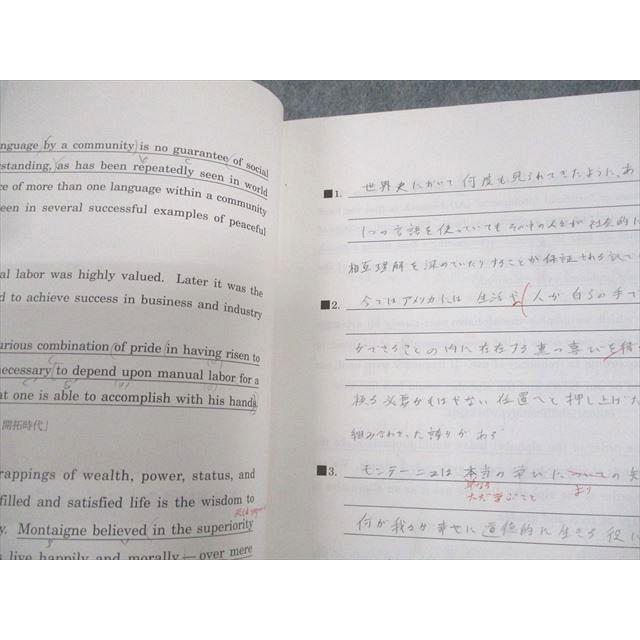 nguage by a community is no guarantee of social
standing, as has been repeatedly seen in world
ce of more than one language within a community
een in several successful examples of peaceful
al labor was highly valued. Later it was the
d to achieve success in business and industry
urious combination of pride in having risen to
necessary to depend upon manual labor for a
at one is able to accomplish with his hands
開拓時代」
rappings of wealth, power, status, and
filled and satisfied life is the wisdom to
y. Montaigne believed in the superiority
s live happily and morally—over mere
■1. 世界史において何度も見られてきたように、あ
1つの言語を使っていてもその中の人々が社会的に
相互理解を深めていたりすることが保証される訳で
■2. 今ではアメリカには 生活 人が自らの手で
ができることの内に存在する真の喜びを
頼る必要がもはやない位置へと押し上げた
組み合わさった誇りがある
■3. モンテーニュは 本当の学びに の
単なる
ただ学ぶこと より
何が我々が幸せに道徳的に生きる役に